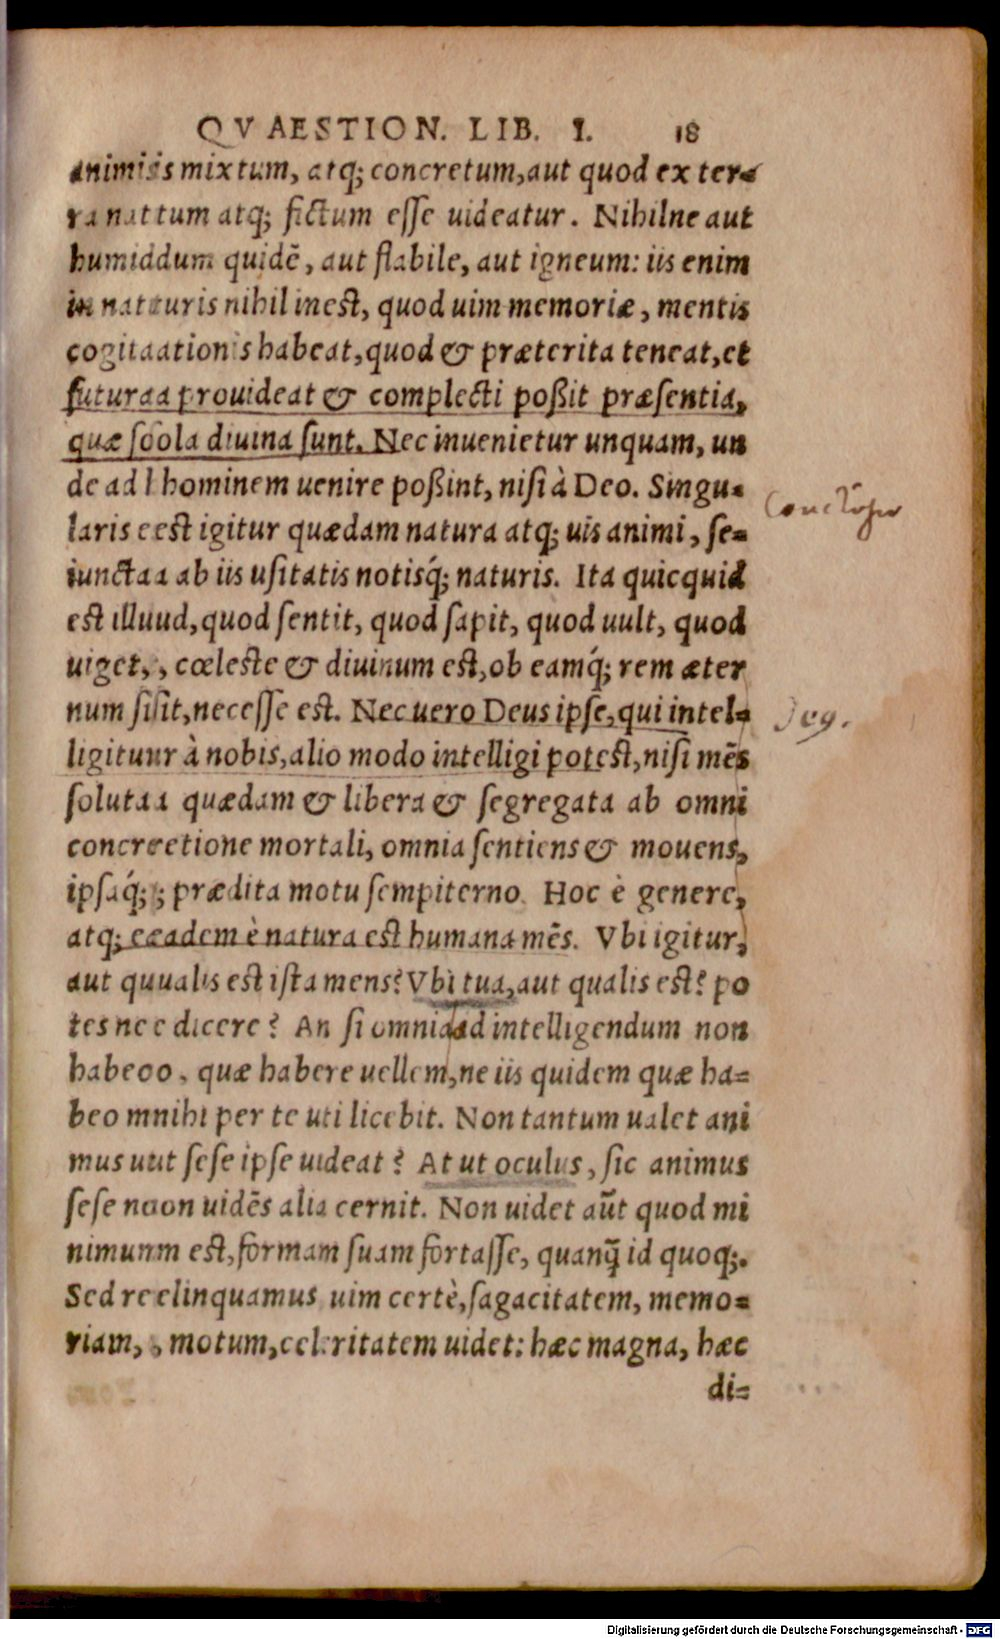 QVAESTION. LIB. I. 18
animiis mixtum, atq; concretum, aut quod ex ter-
ra nattum atq; fictum esse uideatur. Nihilne aut
humiddum quidē, aut flabile, aut igneum: iis enim
in natturis nihil inest, quod uim memoriæ, mentis
cogitaationis habeat, quod & præterita teneat, et
futuraa prouideat & complecti poßit præsentia,
quæ soola diuina sunt. Nec inuenietur unquam, un
de ad lhominem uenire poßint, nisi à Deo. Singu-
laris eest igitur quædam natura atq; uis animi, se-
iunctaa ab iis usitatis notisq́; naturis. Ita quicquid
est illuud, quod sentit, quod sapit, quod uult, quod
uiget,, cœleste & diuinum est, ob eamq́; rem æter
num sisit, necesse est. Nec uero Deus ipse, qui intel-
ligituur à nobis, alio modo intelligi potest, nisi mēs
solutaa quædam & libera & segregata ab omni
concreetione mortali, omnia sentiens & mouens,
ipsaq́;; prædita motu sempiterno. Hoc è genere,
atq; eeadem è natura est humana mēs. Vbi igitur,
aut quualis est ista mens? Vbi tua, aut qualis est? po
tesnee dicere? An si omnia ad intelligendum non
habeoo, quæ habere uellem, ne iis quidem quæ ha-
beo mnihi per te uti licebit. Non tantum ualet ani
mus uut sese ipse uideat? At ut oculus, sic animus
sese noon uidēs alia cernit. Non uidet aūt quod mi
nimuum est, formam suam fortasse, quanq̃ id quoq;.
Sed reelinquamus uim certè, sagacitatem, memo-
riam,, motum, celeritatem uidet: hæc magna, hæc
di-
Digitalisierung gefördert durch die Deutsche Forschungsgemeinschaft - DFG